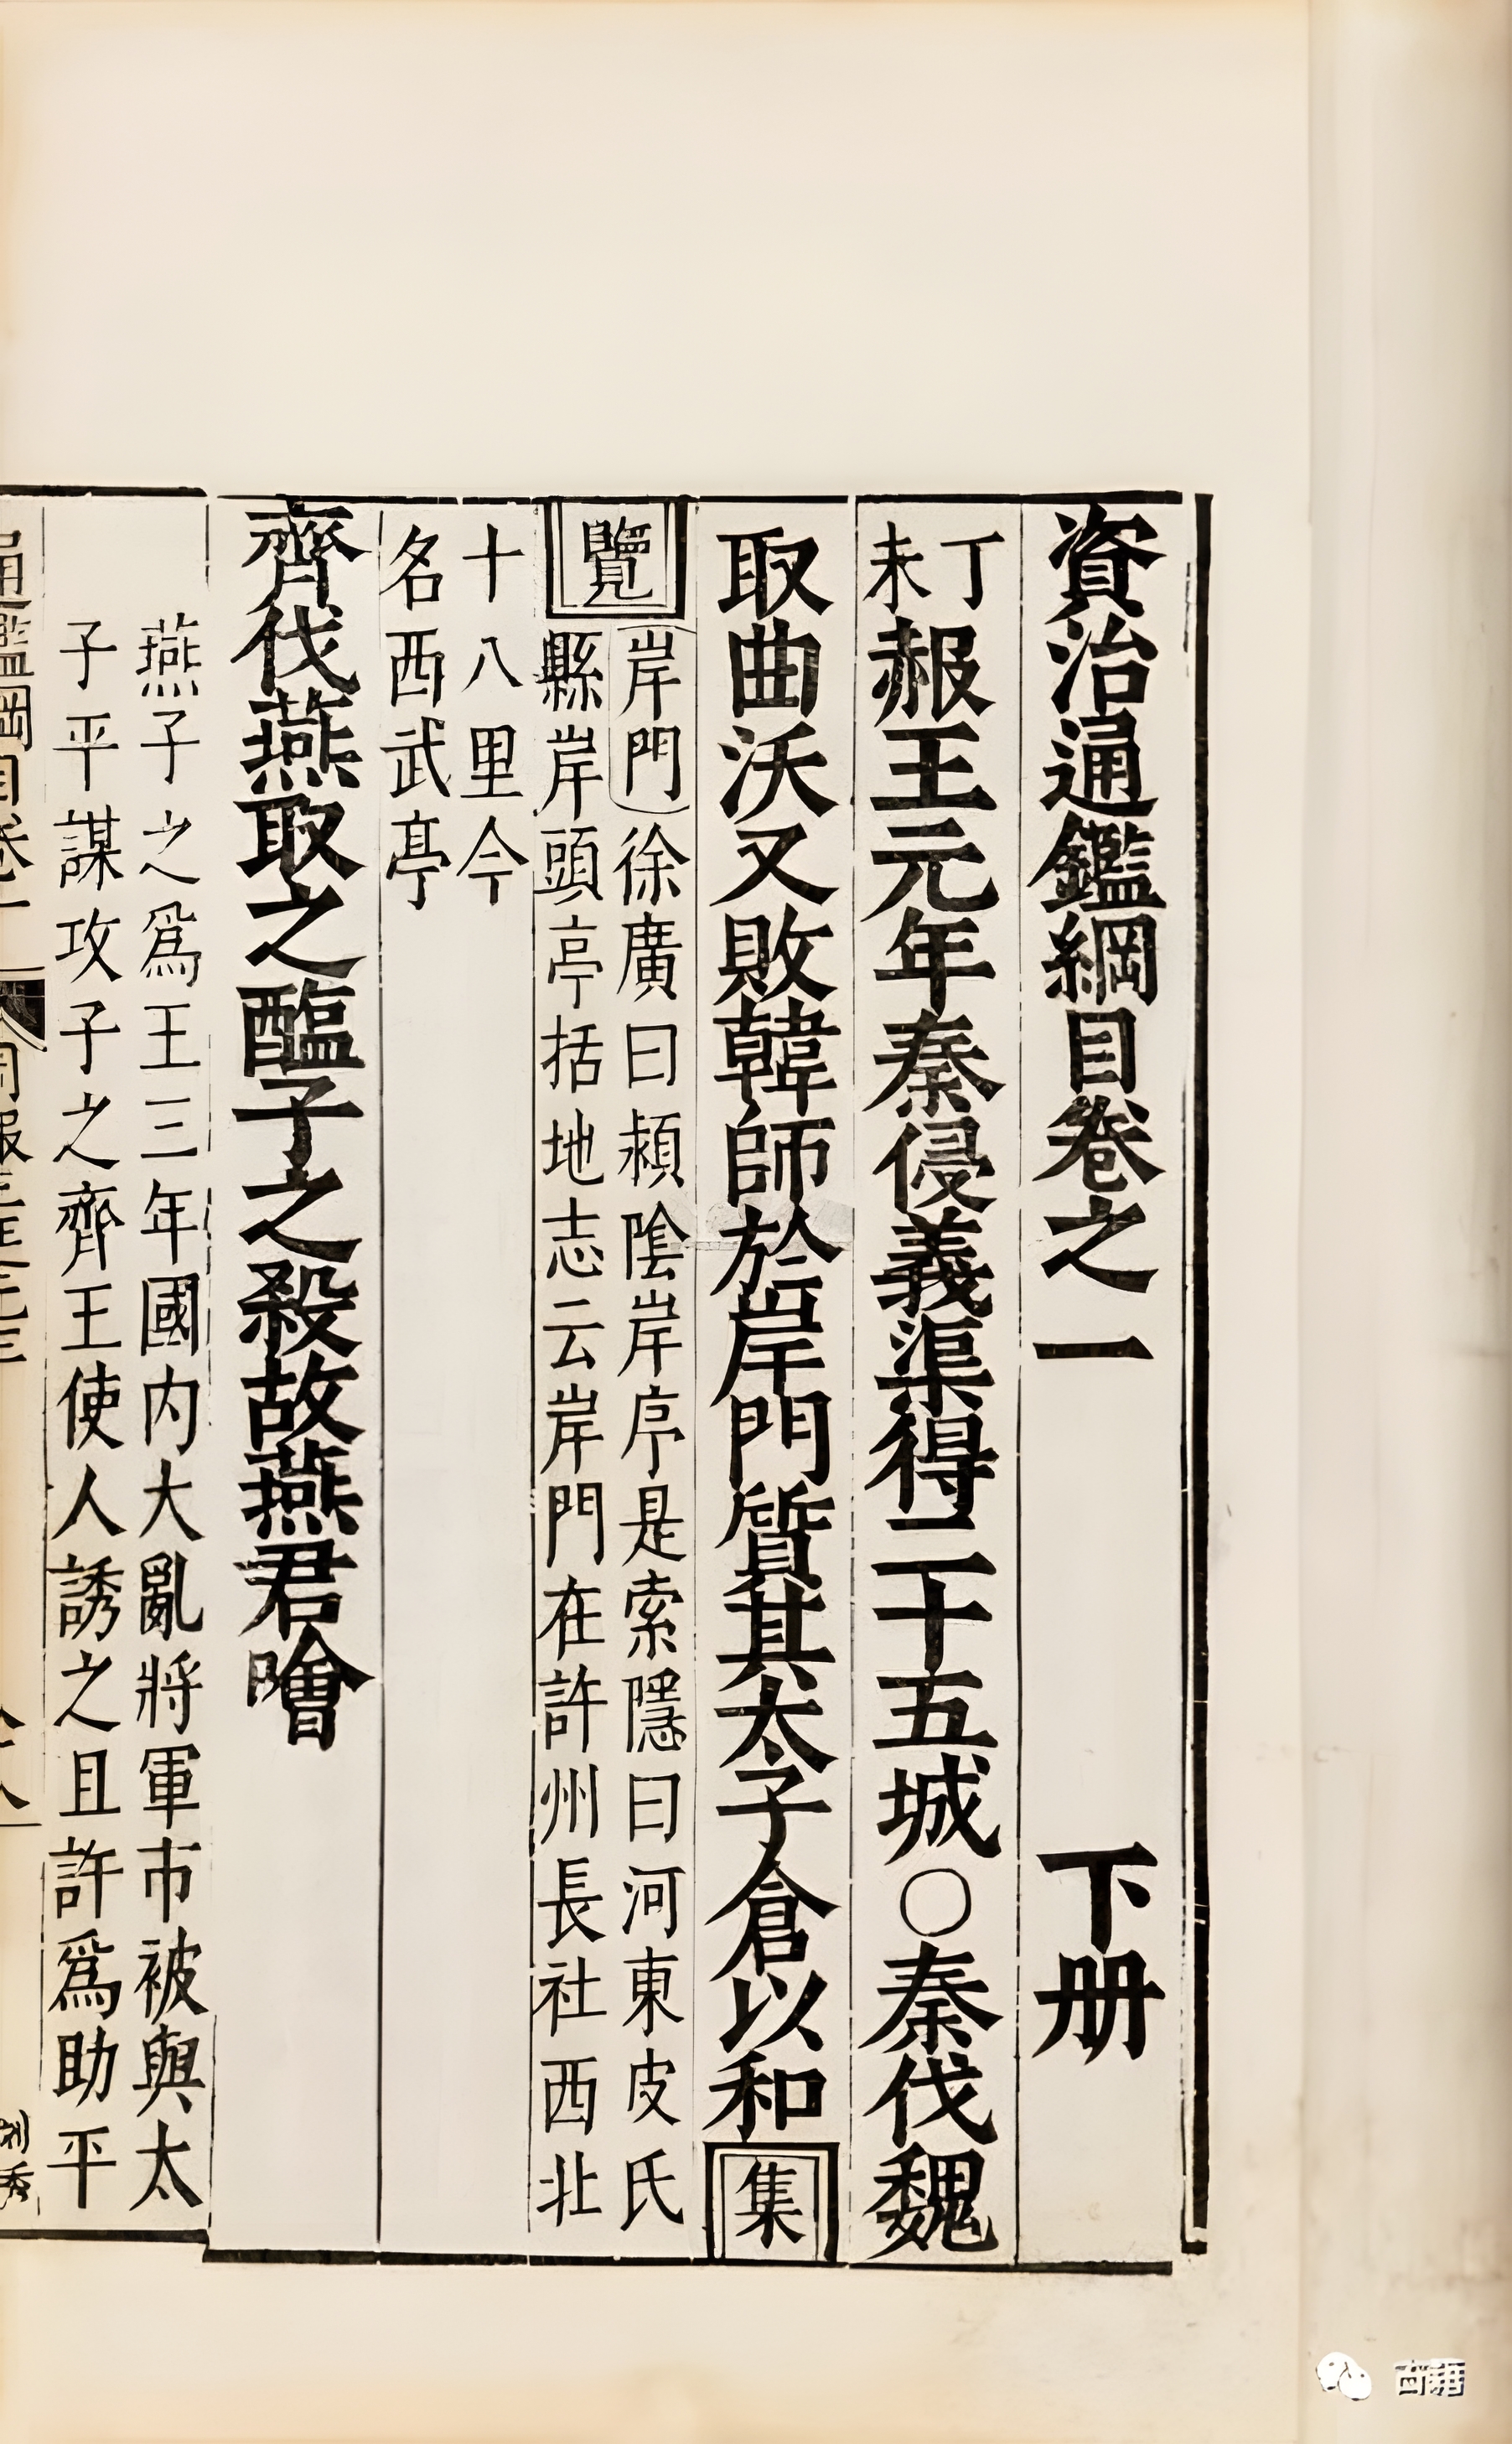 資治通鑑綱目卷之一 下册
丁未赧王元年秦侵義渠得二十五城○秦伐魏
取曲沃又敗韓師於岸門質其太子倉以和集
覽岸門徐廣曰潁陰岸亭是索隱曰河東皮氏
縣岸頭亭括地志云岸門在許州長社西北
十八里今
名西武亭
齊伐燕取之醢子之殺故燕君噲
燕子之爲王三年國内大亂將軍市被與太
子平謀攻子之齊王使人誘之且許爲助平